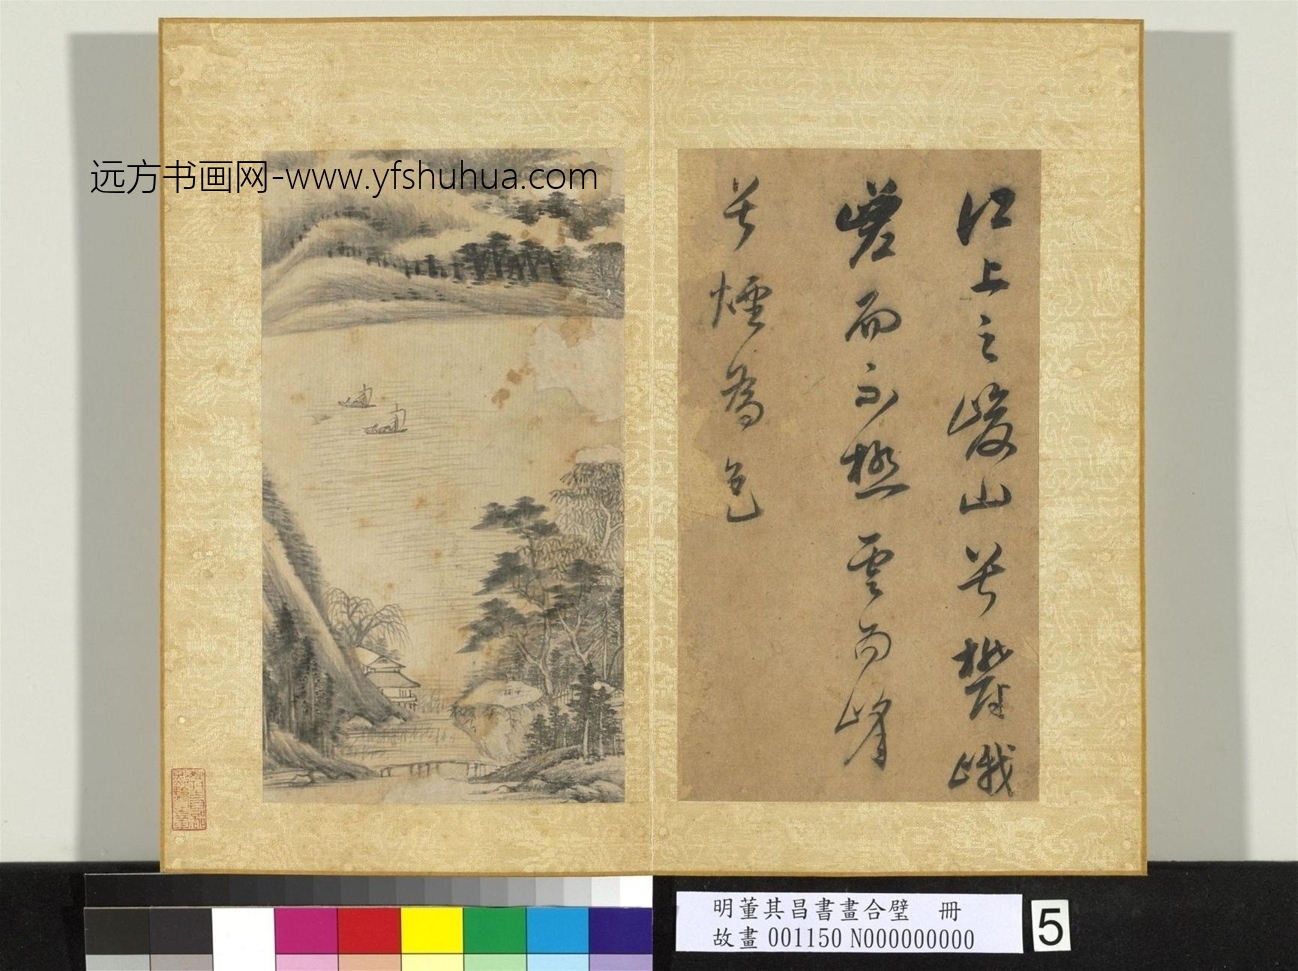 远方书画网-www.yfshuhua.com
江上之峻山兮鬱峨
而不極雲為峰
兮煙為色
明董其昌書畫合璧 冊
故畫 001150 N000000000
5